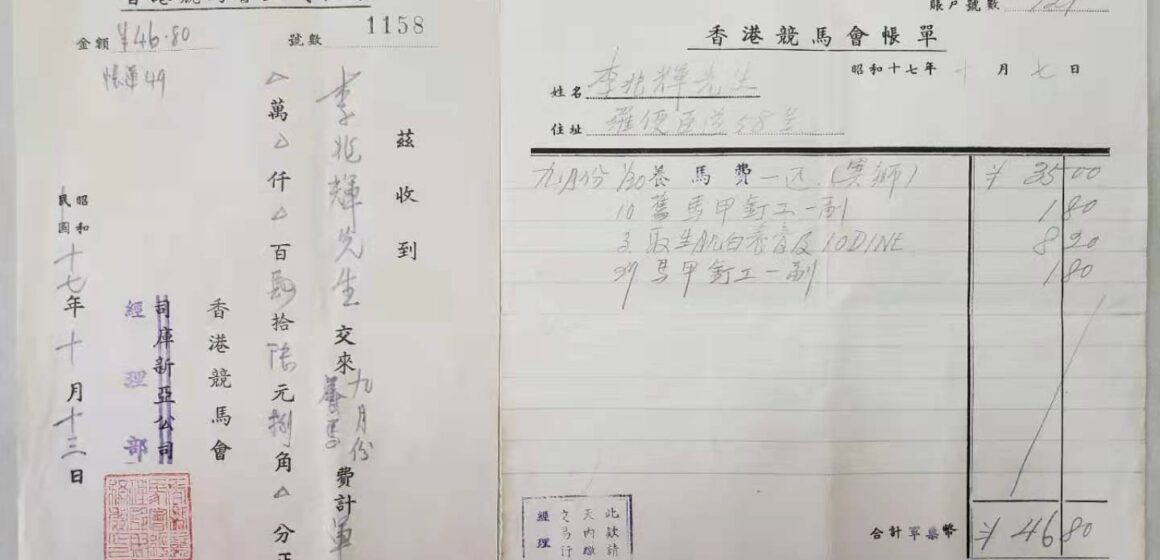 金額 ¥46.80
號數 1158
帳單49
茲收到
李兆輝先生交來九月份養馬費計軍
△萬△仟△百肆拾陸元捌角△分正
香港競馬會
司庫新亞公司
經理部
昭和
民國
十七年十月十三日
賬戶號數
香港競馬會帳單
昭和十七年十月七日
姓名 李兆輝先生
住址 羅便臣道58号
九月份 1/30 養馬費一匹 ¥ 35 00
10 舊馬甲釘工一副 1 80
IODINE 8 20
29 馬甲釘工一副 1 80
此款請
天內繳
交另行
經理
合計軍票幣 ¥ 46 80